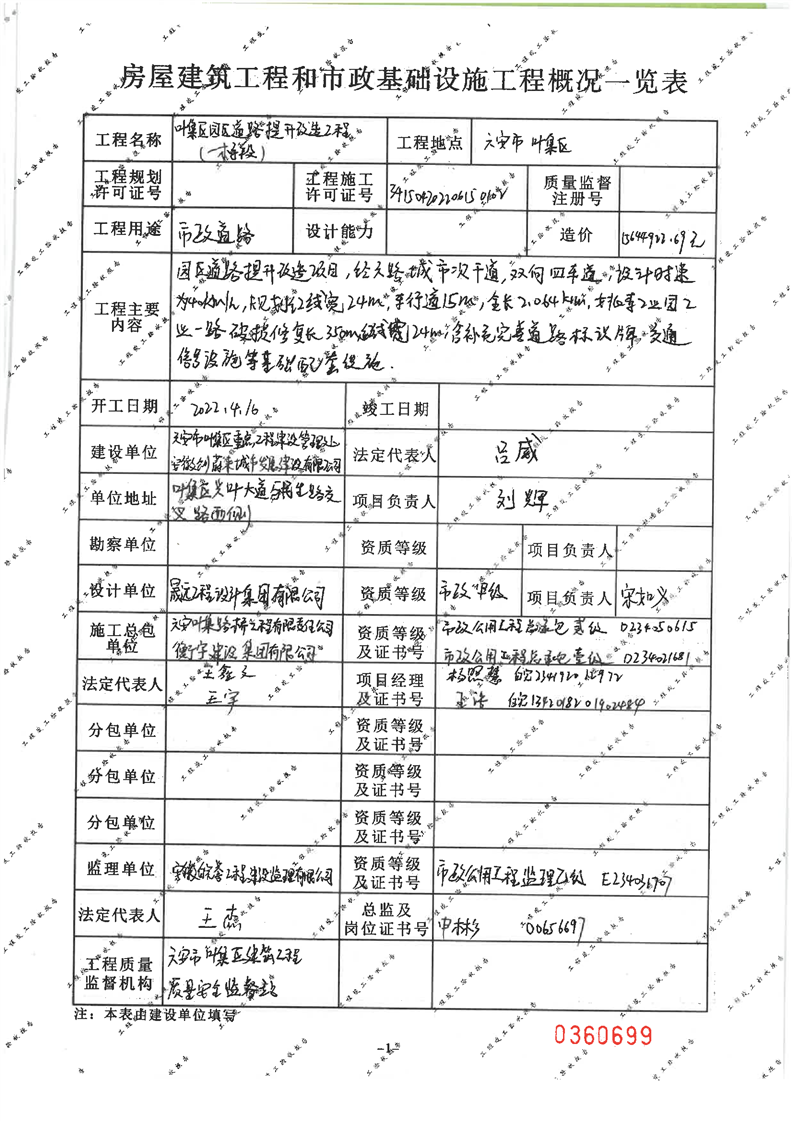 房屋建筑工程和市政基础设施工程概况一览表
工程名称 叶集区园区道路提升改造工程 工程地点 六安市叶集区
(一标段)
工程规划许可证号 工程施工许可证号 341504202206150102 质量监督注册号
工程用途 市政道路 设计能力 造价 15644922.69元
工程主要内容
园区道路提升改造项目,经六路城市次干道,双向四车道,设计时速
为40km/h,规划红线宽24m,车行道15m,全长2.064km,
业一路破损修复长350m红线宽24m,含补充完善道路标识牌、交通
信号设施等基础配套设施.
开工日期 2022.4.16 竣工日期
建设单位 六安市叶集区重点工程建设管理处 法定代表人 吕威
城市发展建设有限公司
单位地址 叶集区 叶大道与民生路交 项目负责人 刘辉
叉路西侧
勘察单位 资质等级 项目负责人
设计单位 晟远工程设计集团有限公司 资质等级 市政甲级 项目负责人 宋如义
施工总包单位 六安叶集路桥工程有限责任公司 资质等级及证书号 市政公用工程总承包壹级 D234050615
衡宇建设集团有限公司 市政公用工程总承包壹级 D234021681
法定代表人 王鑫 项目经理及证书号
王宇
分包单位 资质等级及证书号
分包单位 资质等级及证书号
分包单位 资质等级及证书号
监理单位 工程建设监理有限公司 资质等级及证书号 市政公用工程监理乙级 E234036707
法定代表人 王磊 总监及岗位证书号 申林彬 00656697
工程质量监督机构 六安市叶集区建筑工程
质量安全监督站
注：本表由建设单位填写
0360699
-1-
工程竣工验收报告